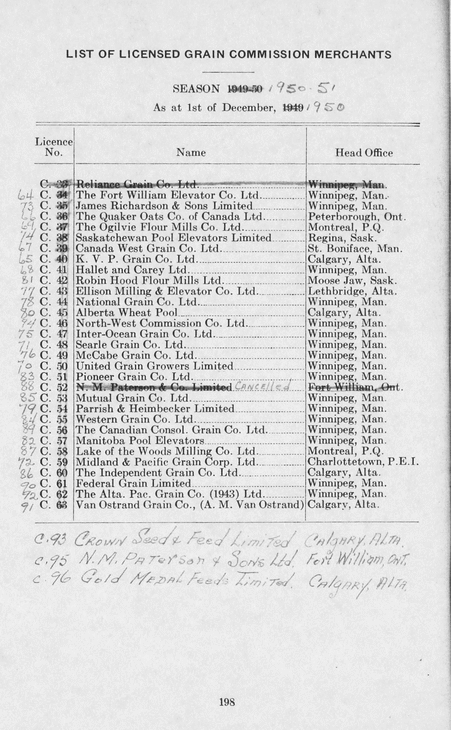 LIST OF LICENSED GRAIN COMMISSION MERCHANTS
SEASON 1949-50 1950-51
As at 1st of December, 1949 1950
Licence No. Name Head Office
C. 33 Reliance Grain Co. Ltd. Winnipeg, Man.
64 C. 34 The Fort William Elevator Co. Ltd. Winnipeg, Man.
73 C. 35 James Richardson & Sons Limited Winnipeg, Man.
C. 36 The Quaker Oats Co. of Canada Ltd. Peterborough, Ont.
C. 37 The Ogilvie Flour Mills Co. Ltd. Montreal, P.Q.
74 C. 38 Saskatchewan Pool Elevators Limited Regina, Sask.
67 C. 39 Canada West Grain Co. Ltd. St. Boniface, Man.
65 C. 40 K. V. P. Grain Co. Ltd. Calgary, Alta.
68 C. 41 Hallet and Carey Ltd. Winnipeg, Man.
81 C. 42 Robin Hood Flour Mills Ltd. Moose Jaw, Sask.
77 C. 43 Ellison Milling & Elevator Co. Ltd. Lethbridge, Alta.
78 C. 44 National Grain Co. Ltd. Winnipeg, Man.
80 C. 45 Alberta Wheat Pool Calgary, Alta.
94 C. 46 North-West Commission Co. Ltd. Winnipeg, Man.
75 C. 47 Inter-Ocean Grain Co. Ltd. Winnipeg, Man.
71 C. 48 Searle Grain Co. Ltd. Winnipeg, Man.
76 C. 49 McCabe Grain Co. Ltd. Winnipeg, Man.
70 C. 50 United Grain Growers Limited Winnipeg, Man.
83 C. 51 Pioneer Grain Co. Ltd. Winnipeg, Man.
88 C. 52 N. M. Paterson & Co. Limited Cancelled Fort William, Ont.
85 C. 53 Mutual Grain Co. Ltd. Winnipeg, Man.
79 C. 54 Parrish & Heimbecker Limited Winnipeg, Man.
84 C. 55 Western Grain Co. Ltd. Winnipeg, Man.
C. 56 The Canadian Consol. Grain Co. Ltd. Winnipeg, Man.
82 C. 57 Manitoba Pool Elevators Winnipeg, Man.
87 C. 58 Lake of the Woods Milling Co. Ltd. Montreal, P.Q.
72 C. 59 Midland & Pacific Grain Corp. Ltd. Charlottetown, P.E.I.
86 C. 60 The Independent Grain Co. Ltd. Calgary, Alta.
90 C. 61 Federal Grain Limited Winnipeg, Man.
92 C. 62 The Alta. Pac. Grain Co. (1943) Ltd. Winnipeg, Man.
91 C. 63 Van Ostrand Grain Co., (A. M. Van Ostrand) Calgary, Alta.
C.93 Crown Seed & Feed Limited Calgary, Alta.
C.95 N.M. Paterson & Sons Ltd. Fort William, Ont.
C.96 Gold Medal Feeds Limited. Calgary, Alta
198